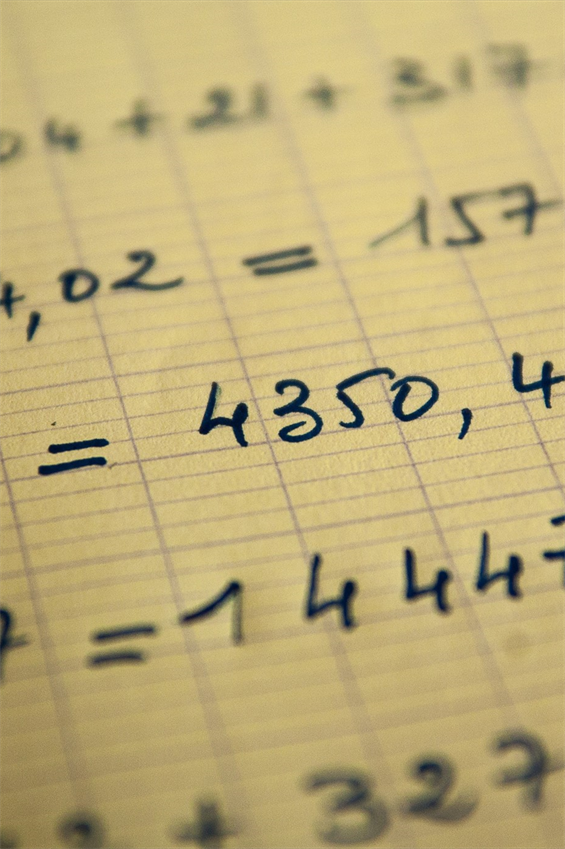 04 + 21 + 317
4,02 = 157
= 4350, 4
7 = 1 4447
2 + 327